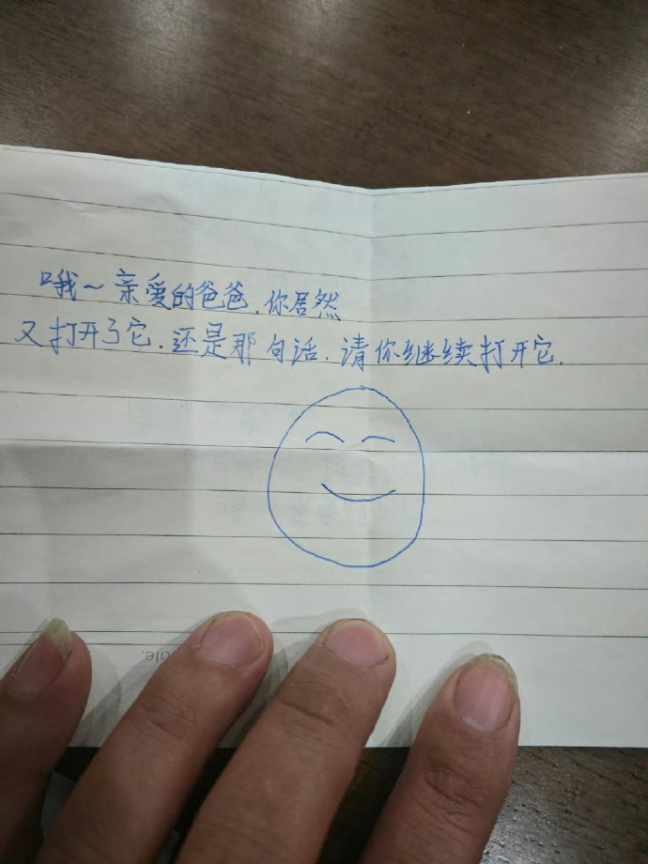 哦～亲爱的爸爸,你居然
又打开了它.还是那句话.请你继续打开它.